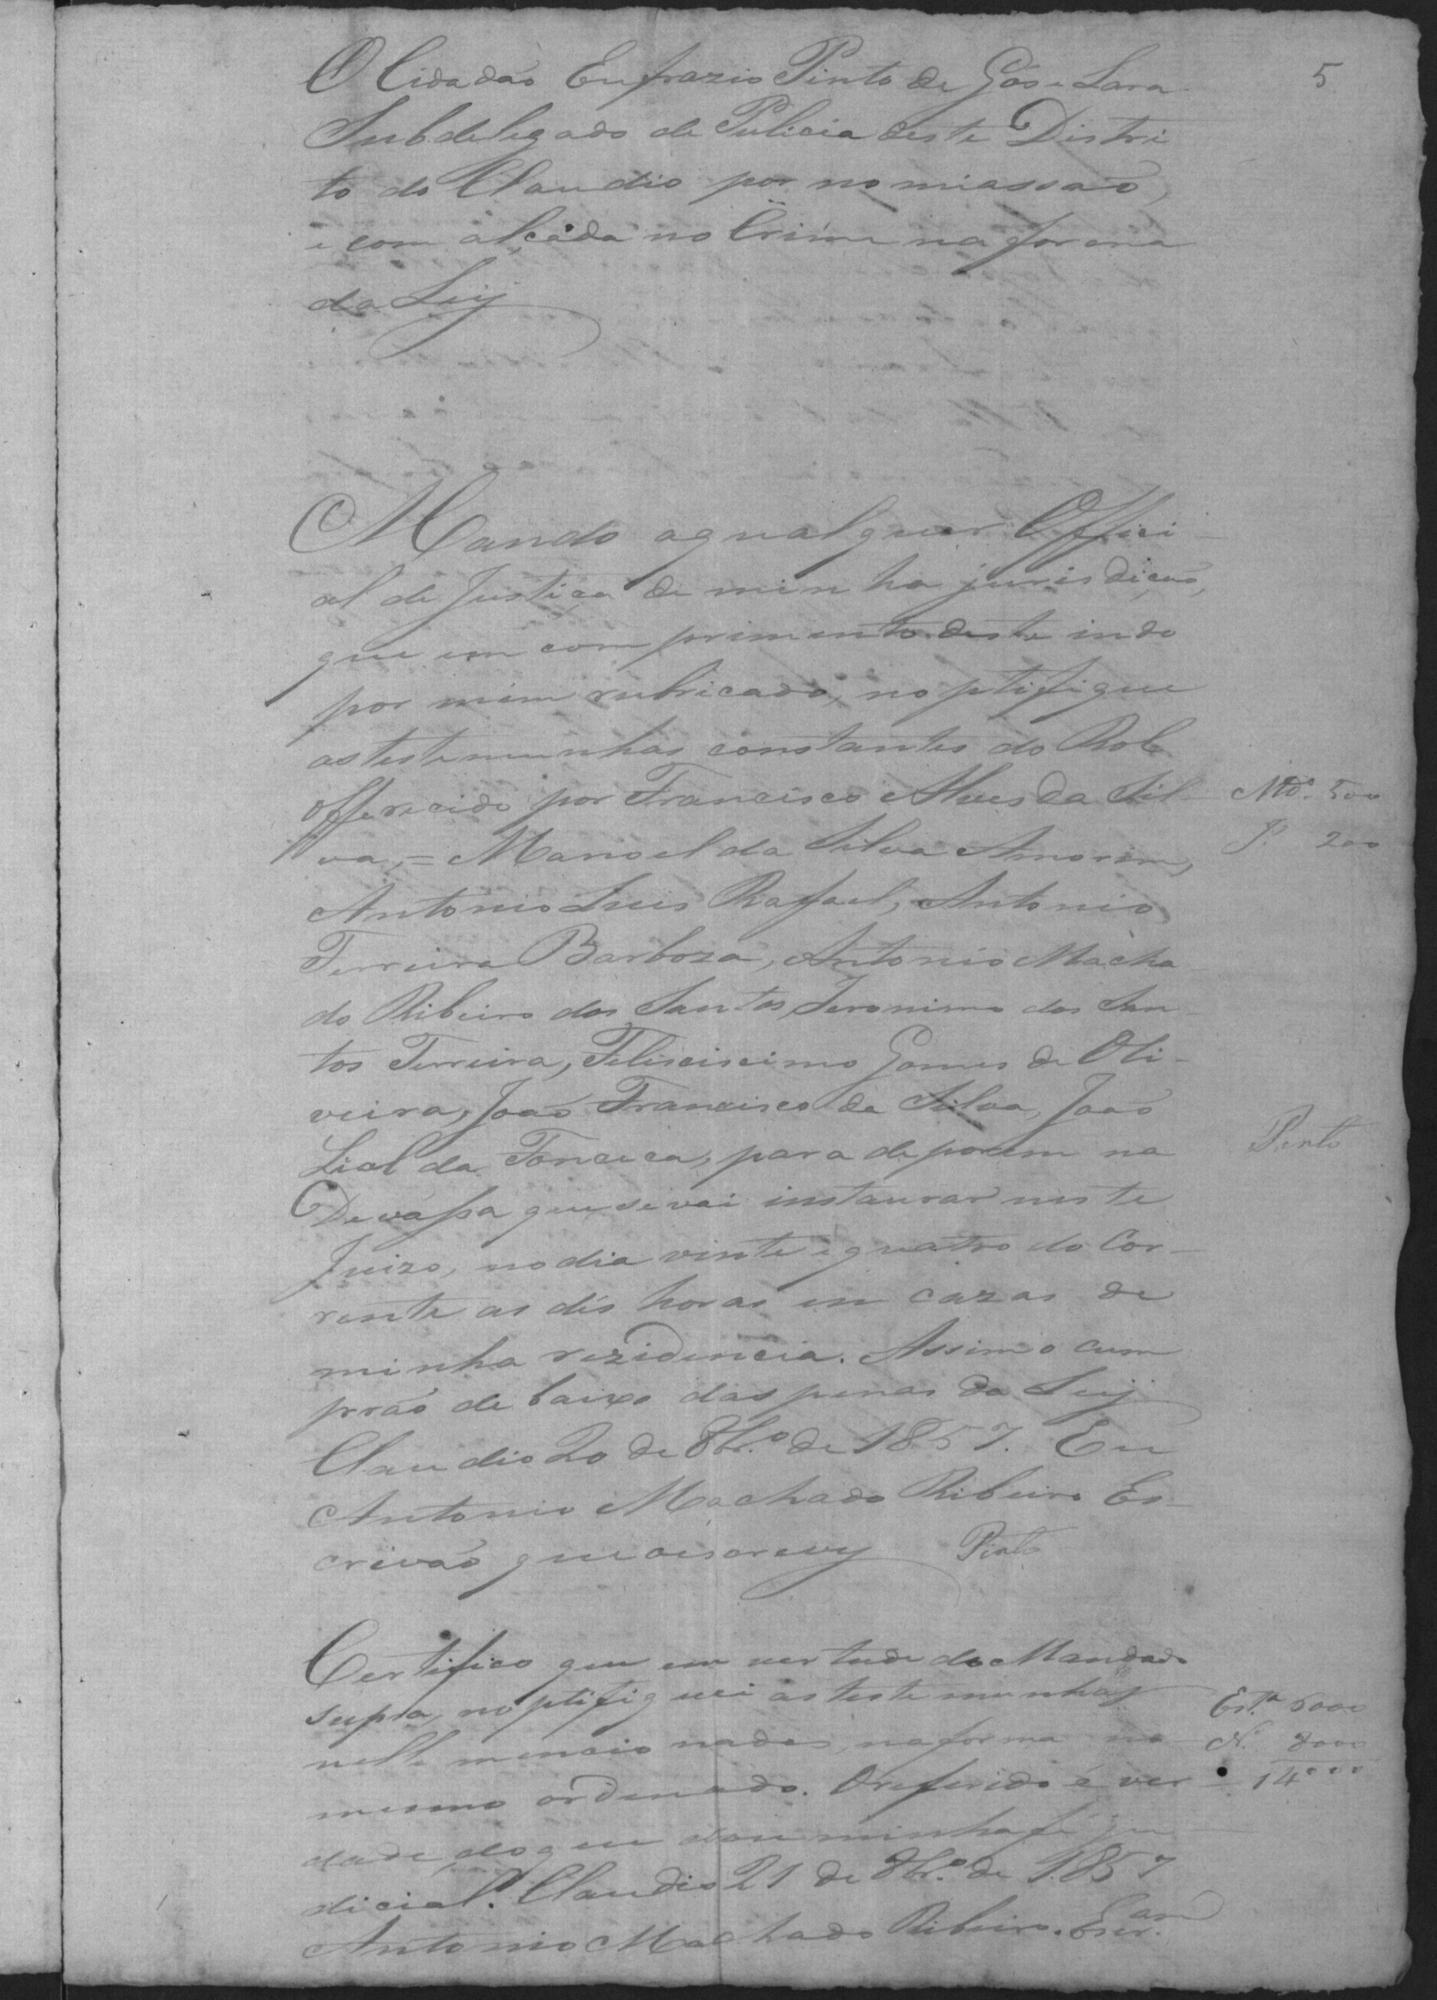 5
O Cidadão Eufrazio Pinto de Góes Lara
Subdelegado de Pulicia deste Distri
to do Claudio por nomiassão,
e com alçada no Crime na forma
da Leij
Mando aqualquer Offici
al de Justiça de minha jurisdição,
que em comprimento deste indo
por mim rubricado, noptifique
as testemunhas constantes do Rol
offerecido por Francisco Alves da Sil
va, = Manoel da Silva Amorim,
Antonio Luis Rafael, Antonio
Ferreira Barboza, Antonio Macha
do Ribeiro dos Santos, Jeronimo dos San
tos Ferreira, Feliscissimo Gomes de Oli
veira, João Francisco da Silva, João
Lial da Fonceca, para deporem na
Devassa que se vai instaurar neste
Juizo, no dia vinte e quatro do Cor
rente as dés horas em cazas de
minha rezidencia. Assim o cum
prão debaixo das penas da Leij
Claudio 20 de 8br.º de 1857. Eu
Antonio Machado Ribeiro Es
crivão que o escrevy Pinto
Md.º 500
J. 200
Pinto
Certifico que em vertude do Mandado
supra, noptifiquei as testemunhas
nelle mencionadas, na forma no
mesmo ordenado. O referido é ver
dade, do que dou minha fé ju
dicial. Claudio 21 de 8br.º de 1857
Antonio Machado Ribeiro. Escr.am
Est.ª 6000
N. 8000
14000